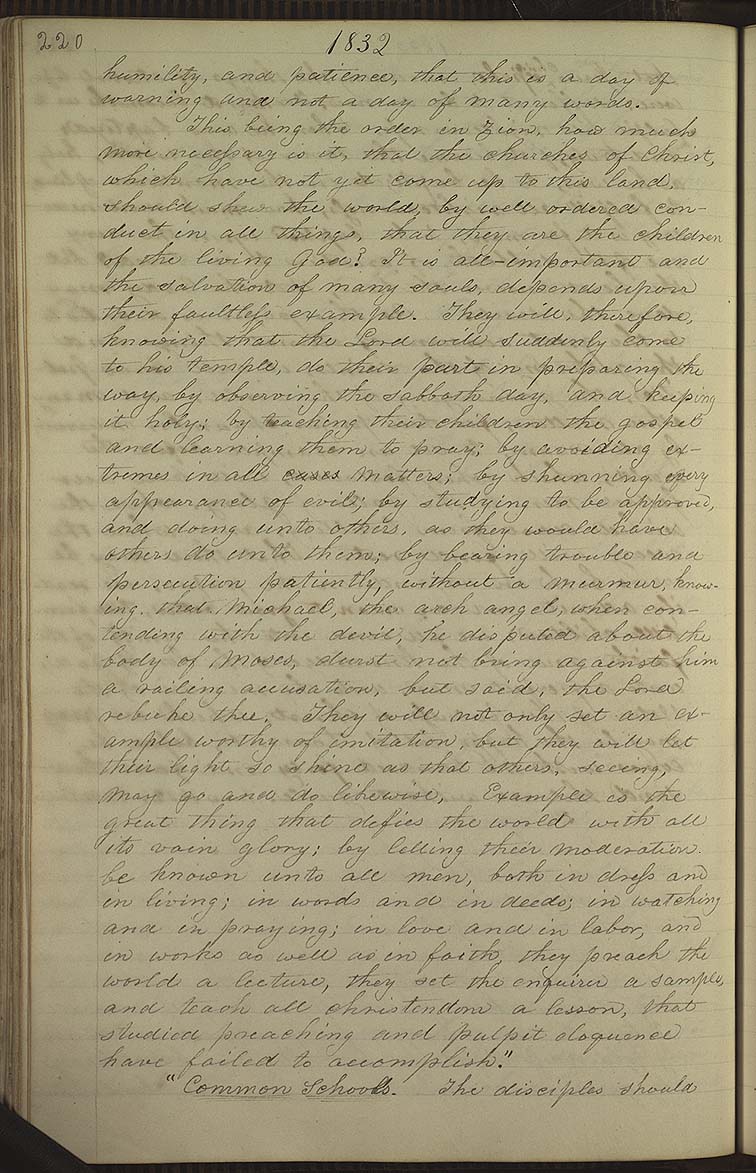 220 1832
humility, and patience, that this is a day of
warning and not a day of many words.
This being the order in Zion, how much
more necessary is it, that the churches of Christ,
which have not yet come up to this land,
should shew the world, by well ordered con-
duct in all things, that they are the children
of the living God? It is all-important and
the salvation of many souls, depends upon
their faultless example. They will, therefore,
knowing that the Lord will suddenly come
to his temple, do their part in preparing the
way, by observing the sabbath day, and keeping
it holy; by teaching their children the gospel
and learning them to pray; by avoiding ex-
tremes in all cases matters; by shunning every
appearance of evil; by studying to be approved,
and doing unto others, as they would have
others do unto them; by bearing trouble and
persecution patiently, without a murmur, know-
ing. that Michael, the arch angel, when con-
tending with the devil, he disputed about the
body of Moses, durst not bring against him
a railing accusation, but said, the Lord
rebuke thee. They will not only set an ex-
ample worthy of imitation, but they will let
their light so shine as that others, seeing,
may go and do likewise. Example is the
great thing that defies the world with all
its vain glory; by letting their moderation
be known unto all men, both in dress and
in living; in words and in deeds; in watching
and in praying; in love and in labor, and
in works as well as in faith, they preach the
world a lecture, they set the enquirer a sample,
and teach all christendom a lesson, that
studied preaching and pulpit eloquence
have failed to accomplish."
"Common Schools. The disciples should